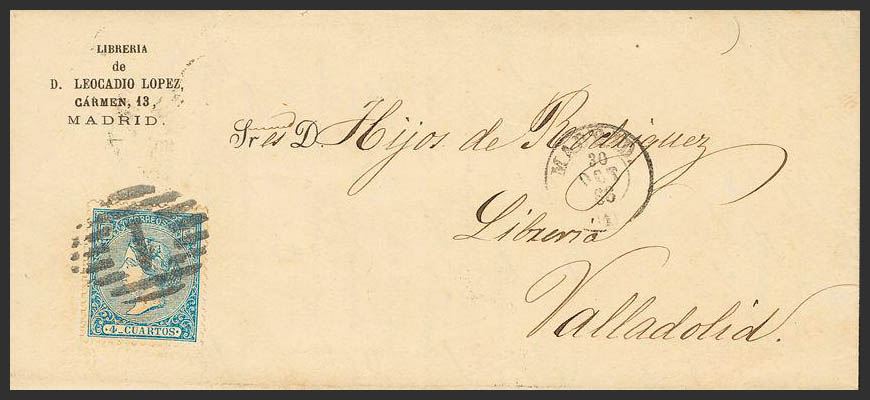 LIBRERIA
de
D. LEOCADIO LOPEZ,
CÁRMEN, 13,
MADRID.
Sres D. Hijos de Rodriguez
MADRID
30
OCT
Librería
Valladolid.
CORREOS
4 CUARTOS
1